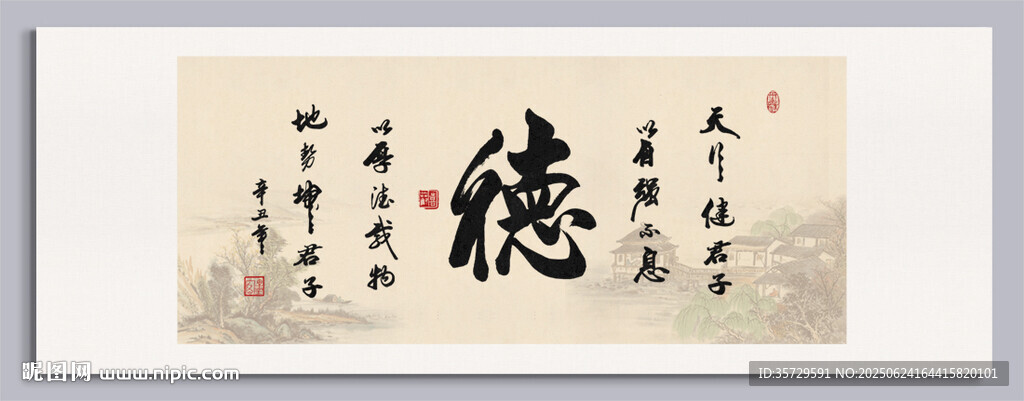 天行健君子
以自强不息
德
以厚德载物
地势坤君子
辛丑年
昵图网 www.nipic.com
ID:35729591 NO:20250624164415820101